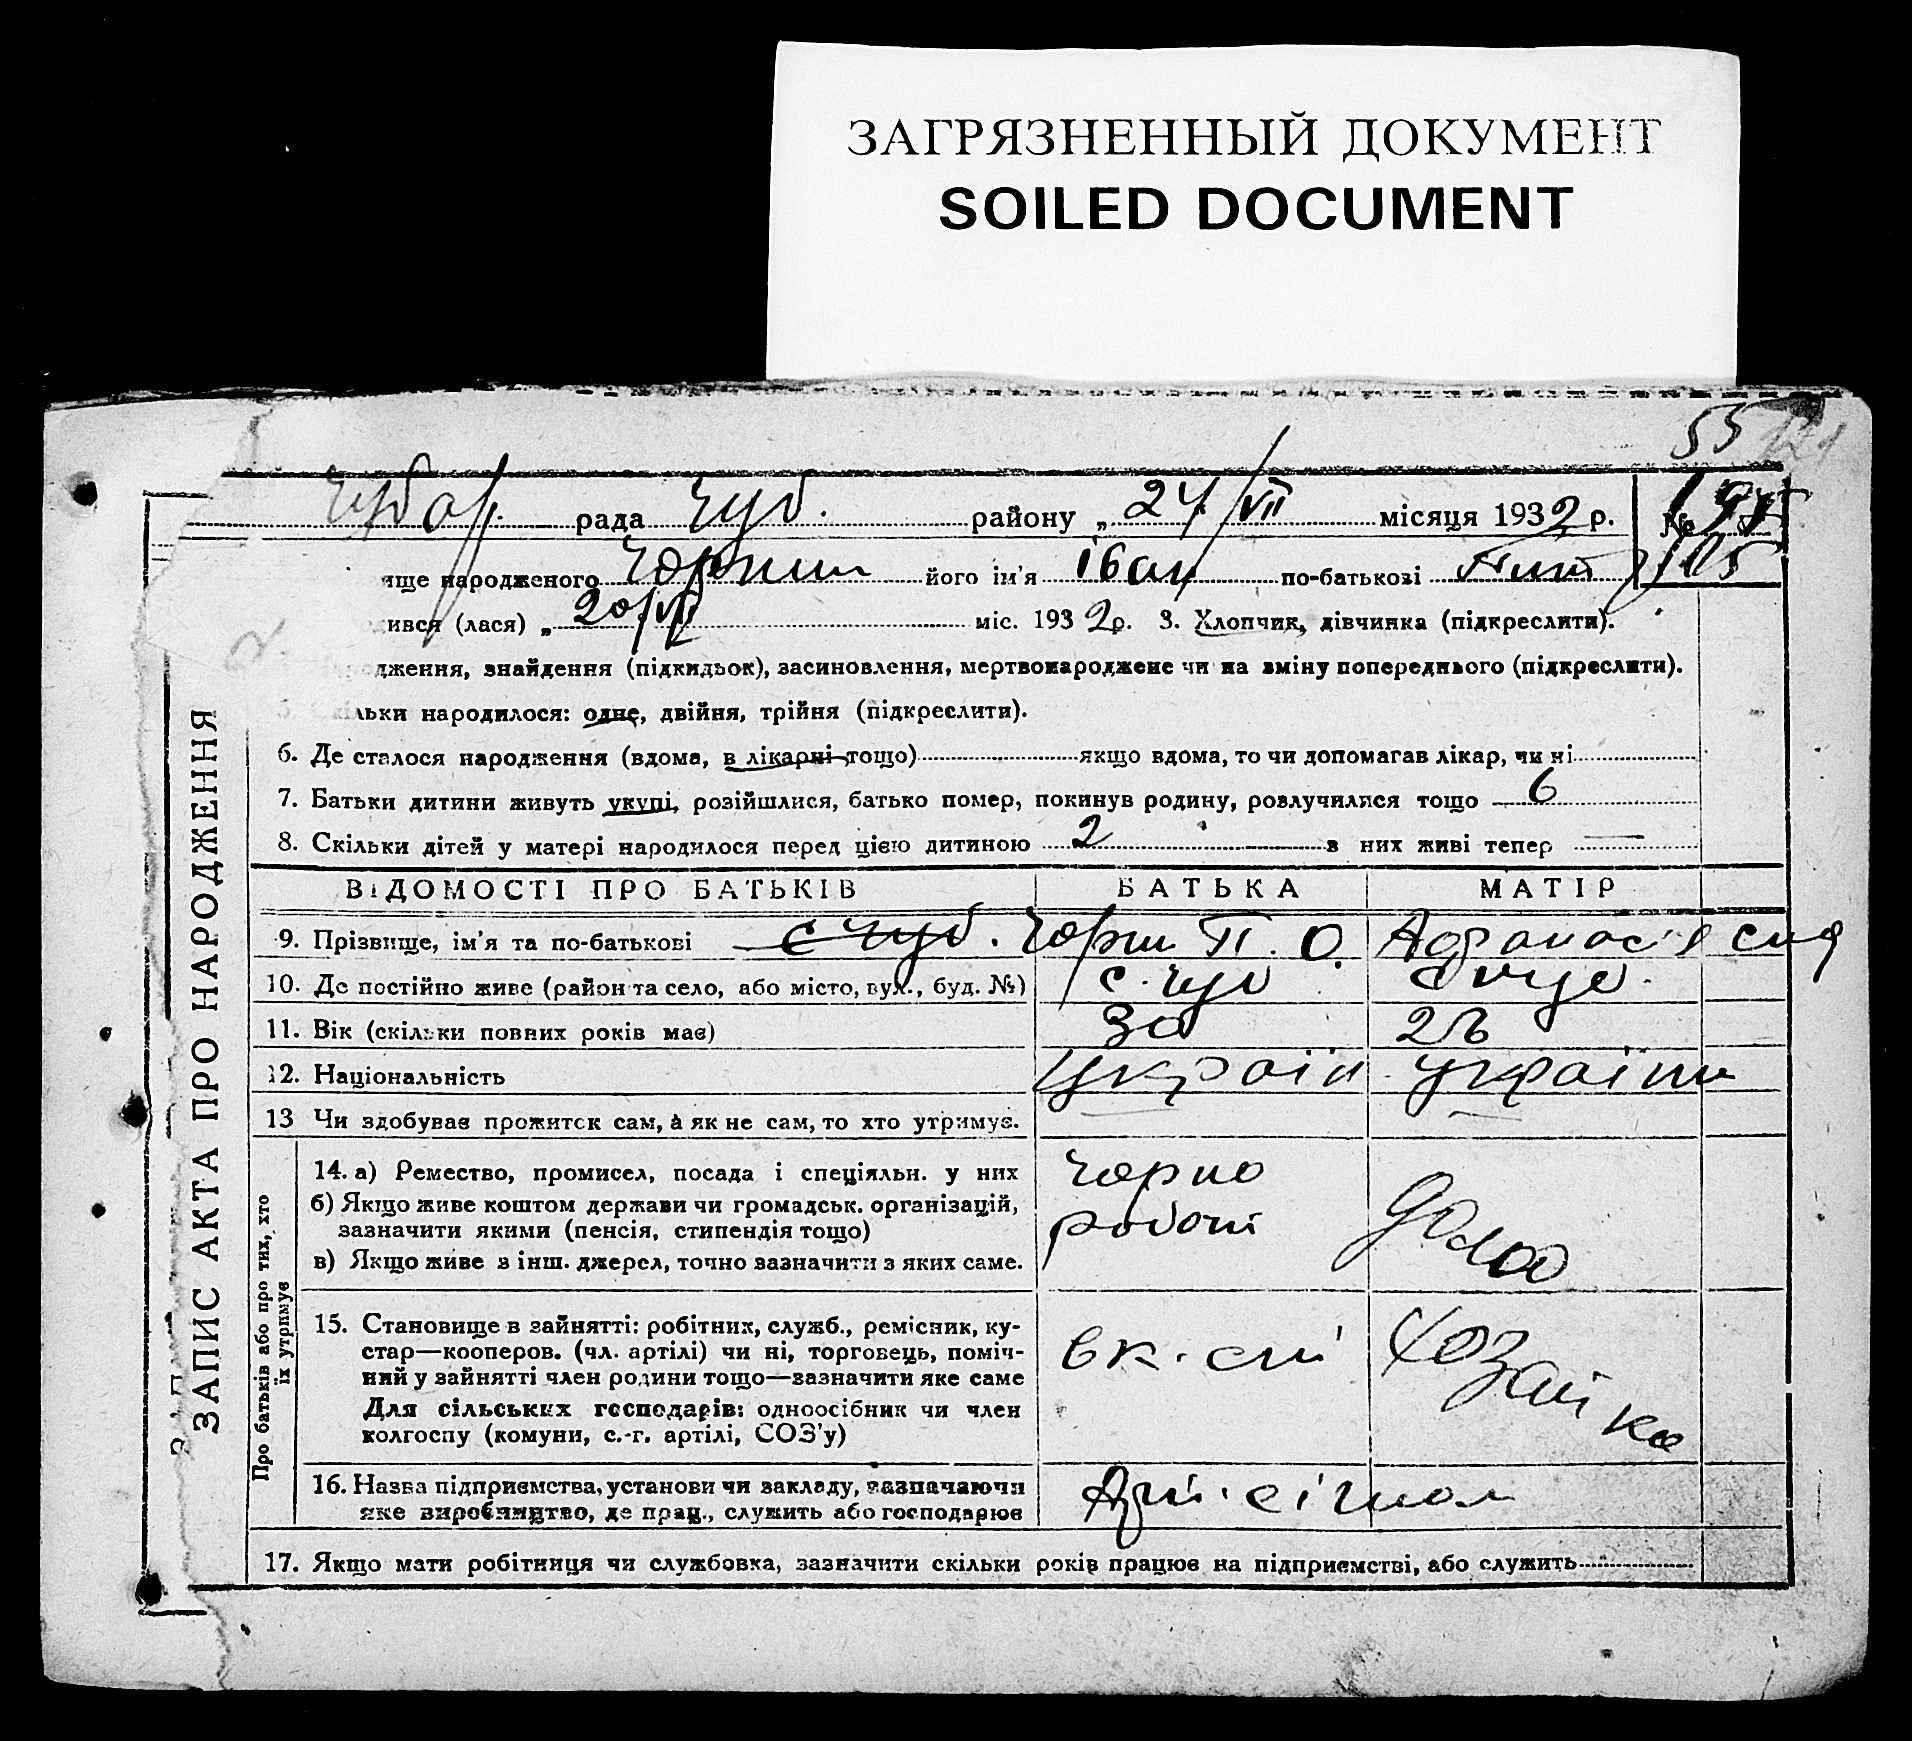 ЗАГРЯЗНЕННЫЙ ДОКУМЕНТ
SOILED DOCUMENT
55
рада Чуб. району „ 24/VII місяця 1932 р. №
ище народженого його ім'я Іван по-батькові
ився (лася) „ 20/VII міс. 1932р. 3. Хлопчик, дівчинка (підкреслити).
дження, знайдення (підкидьок), засиновлення, мертвонароджене чи на зміну попереднього (підкреслити).
льки народилося: одне, двійня, трійня (підкреслити).
6. Де сталося народження (вдома, в лікарні тощо) якщо вдома, то чи допомагав лікар, чи ні
7. Батьки дитини живуть укупі, розійшлися, батько помер, покинув родину, розлучилися тощо 6
8. Скільки дітей у матері народилося перед цією дитиною 2 з них живі тепер —
ЗАПИС АКТА ПРО НАРОДЖЕННЯ
ВІДОМОСТІ ПРО БАТЬКІВ БАТЬКА МАТІР
9. Прізвище, ім'я та по-батькові с Чуб. П. О.
10. Де постійно живе (район та село, або місто, вул., буд. №) с. Чуб
11. Вік (скільки повних років має) 30
12. Національність Україн україн
13 Чи здобуває прожиток сам, а як не сам, то хто утримує.
Про батьків або про тих, хто їх утримує
14. а) Ремество, промисел, посада і спеціяльн. у них чорно
б) Якщо живе коштом держави чи громадськ. організацій, робочі
зазначити якими (пенсія, стипендія тощо) дома
в) Якщо живе з інш. джерел, точно зазначити з яких саме.
15. Становище в зайнятті: робітник, служб., ремісник, ку-
стар—кооперов. (чл. артілі) чи ні, торговець, поміч- хозяйка
ний у зайнятті член родини тощо—зазначити яке саме
Для сільських господарів: одноосібник чи член
колгоспу (комуни, с.-г. артілі, СОЗ'у)
16. Назва підприємства, установи чи закладу, зазначаючи
яке виробництво, де прац., служить або господарює
17. Якщо мати робітниця чи службовка, зазначити скільки років працює на підприємстві, або служить